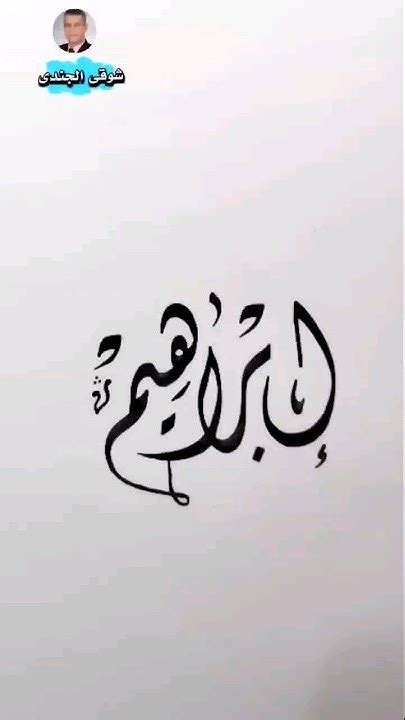 شوقى الجندى
إبراهيم